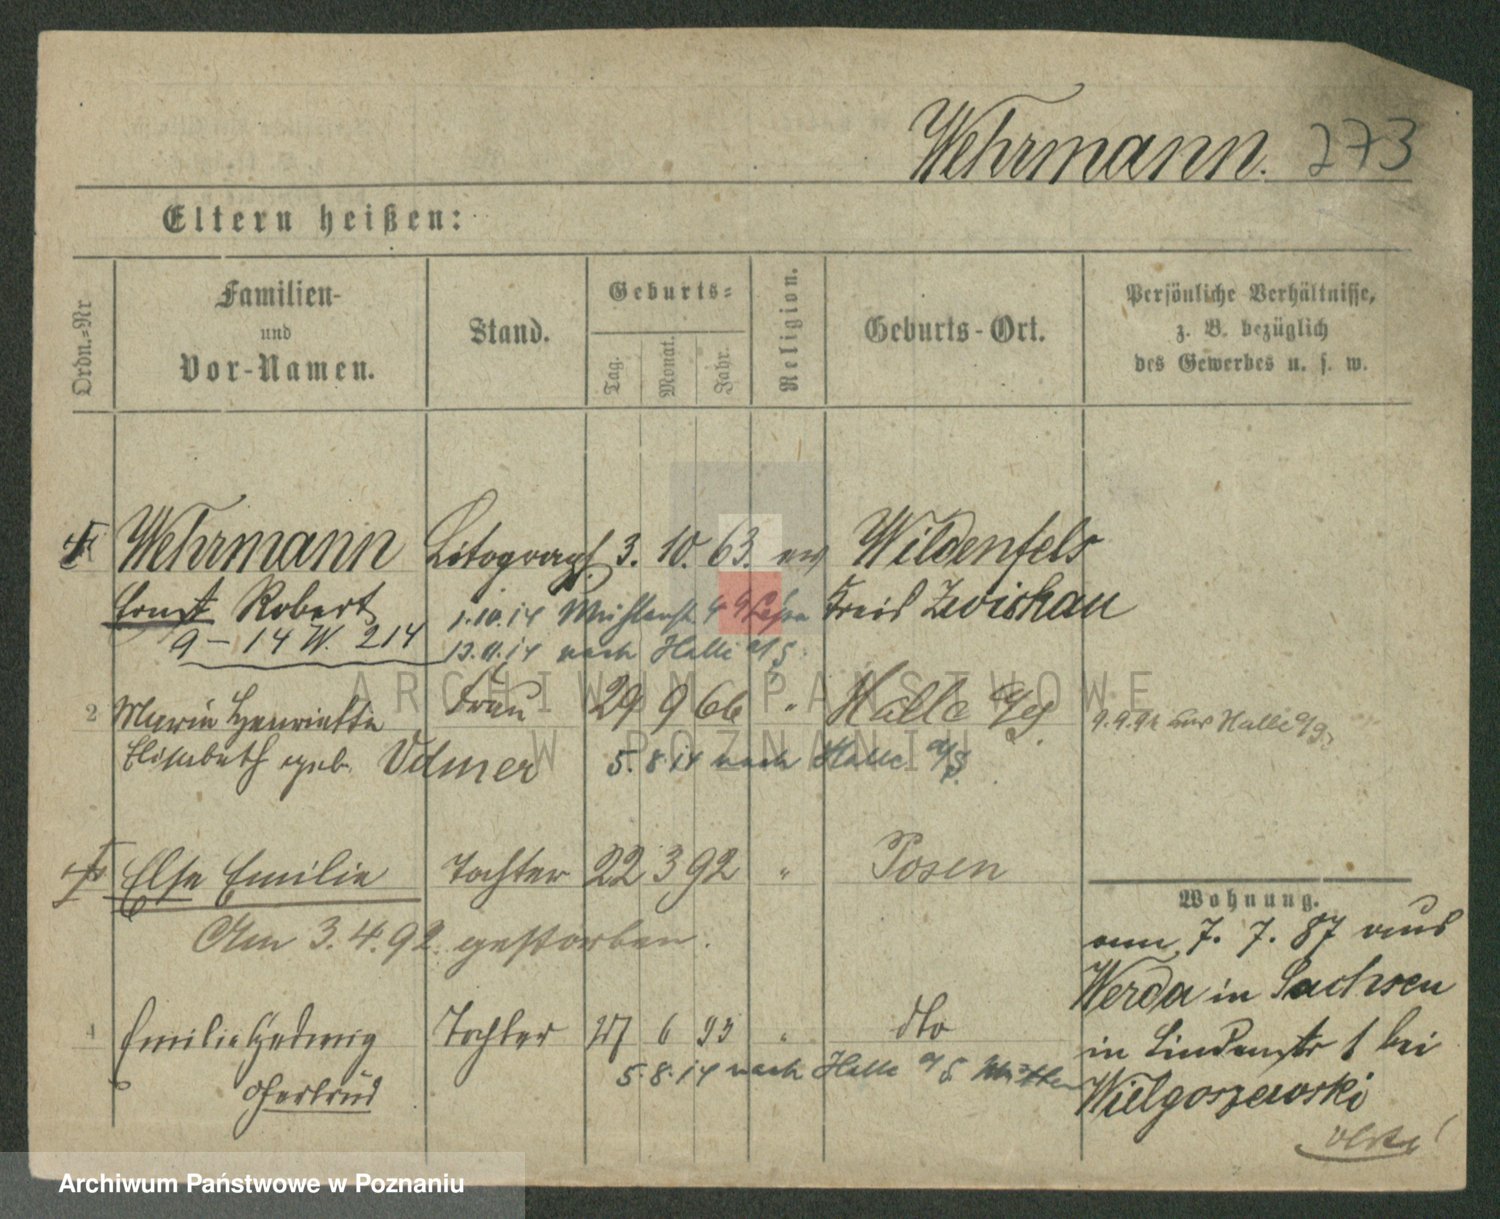 Wehrmann. 273
Eltern heißen:
Ordn.-Nr
Familien-
und
Vor-Namen.
Stand.
Geburts-
Tag.
Monat.
Jahr.
Religion.
Geburts-Ort.
Persönliche Verhältnisse,
z. B. bezüglich
des Gewerbes u. s. w.
Wehrmann Litograph 3. 10. 63. ev Wildenfels
Ernst Robert Kreis Zwickau
1.10.14
9-14 W. 214
13.11.14 nach Halle a/S
2 Marie Henriette Frau 29 9 66 " Halle a/S. 9.9.91 aus Halle a/S
Elisabeth geb. Ulmer 5.8.14 nach Halle a/S.
Else Emilie Tochter 22 3 92 " Posen
Am 3.4.92. gestorben.
4 Emilie Hedwig Tochter 6 93 " dto
Gertrud 5.8.14 nach Halle a/S
Wohnung.
am 7. 7. 87 aus
Werda in Sachsen
in Lindenstr 1 bei
Wielgoszewski
ARCHIWUM PAŃSTWOWE
W POZNANIU
Archiwum Państwowe w Poznaniu